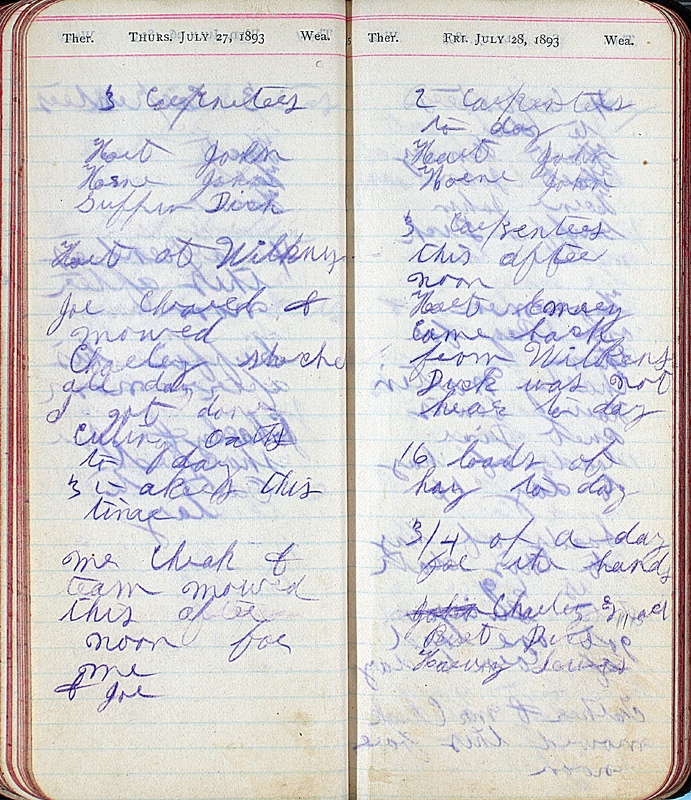 Ther. THURS. JULY 27, 1893 Wea.
3 Carpentees
Hart John
Horne
Duffin Dick
Hart at Wilkny
Joe Choared &
mowed
Charley
all day
I got done
Cuting Oatts
to day
3 akers this
time
me Cheak &
team mowed
this aftee
noon foe
me
& Joe
Ther. FRI. JULY 28, 1893 Wea.
2 Carpentees
to day
Hart John
Hoene John
3 Carpentees
this aftee
noon
Hart Emery
Came back
from Wilkens
Dick was not
hear to day
16 loads of
hay to day
3/4 of a day
foe hands
John Charley
Bert